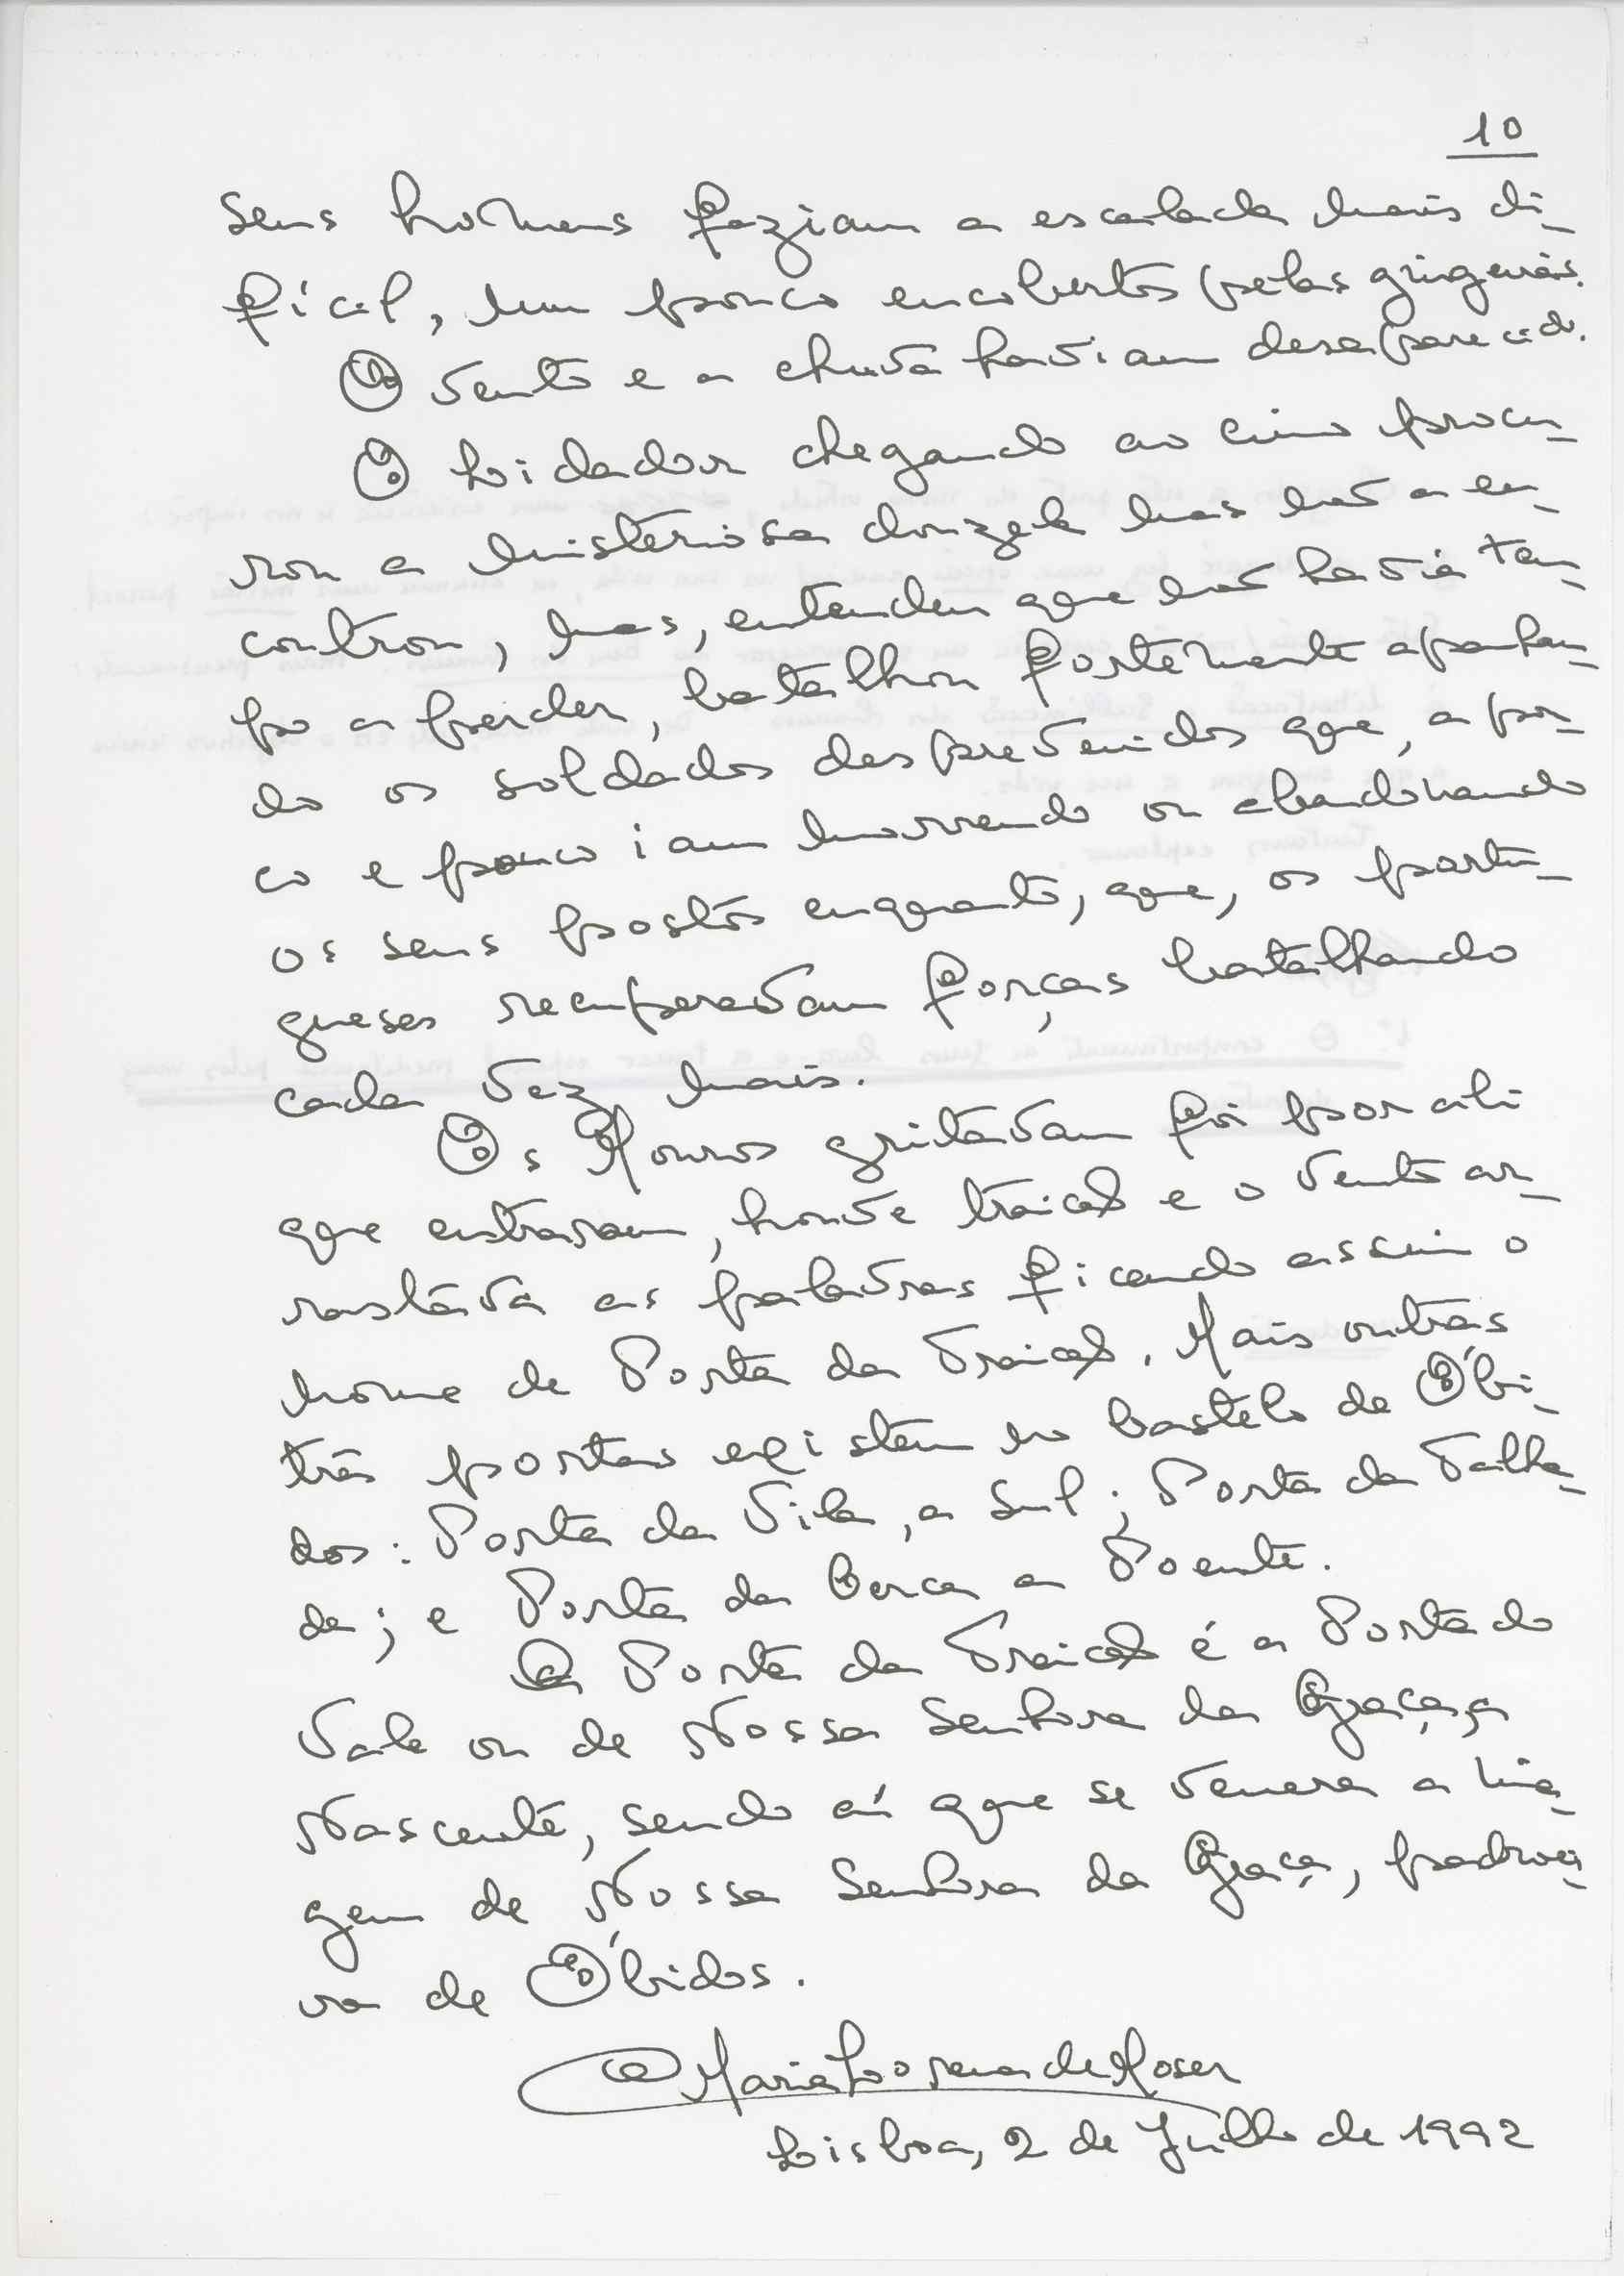 10
seus homens faziam a escalada mais di-
fícil, um pouco encobertos pelas ginjeiras.
O vento e a chuva haviam desaparecido.
O Lidador chegando ao cimo procu-
rou a misteriosa donzela mas não a en-
controu, mas, entendeu que não havia tem-
po a perder, batalhou fortemente apanhan-
do os soldados desprevenidos que, a pou-
co e pouco iam morrendo ou abandonando
os seus postos enquanto, que, os portu-
gueses recuperavam forças batalhando
cada vez mais.
Os Mouros gritavam foi por ali
que entraram, houve traição e o vento ar-
rastava as palavras ficando assim o
nome de Porta da Traição. Mais outras
três portas existem no Castelo de Óbi-
dos: Porta da Vila, a Sul; Porta da Talha-
da; e Porta da Cerca a Poente.
A Porta da Traição é a Porta do
Vale ou de Nossa Senhora da Graça, a
Nascente, sendo aí que se venera a ima-
gem de Nossa Senhora da Graça, padroei-
ra de Óbidos.
Maria Lorena de Moser
Lisboa, 2 de Julho de 1992